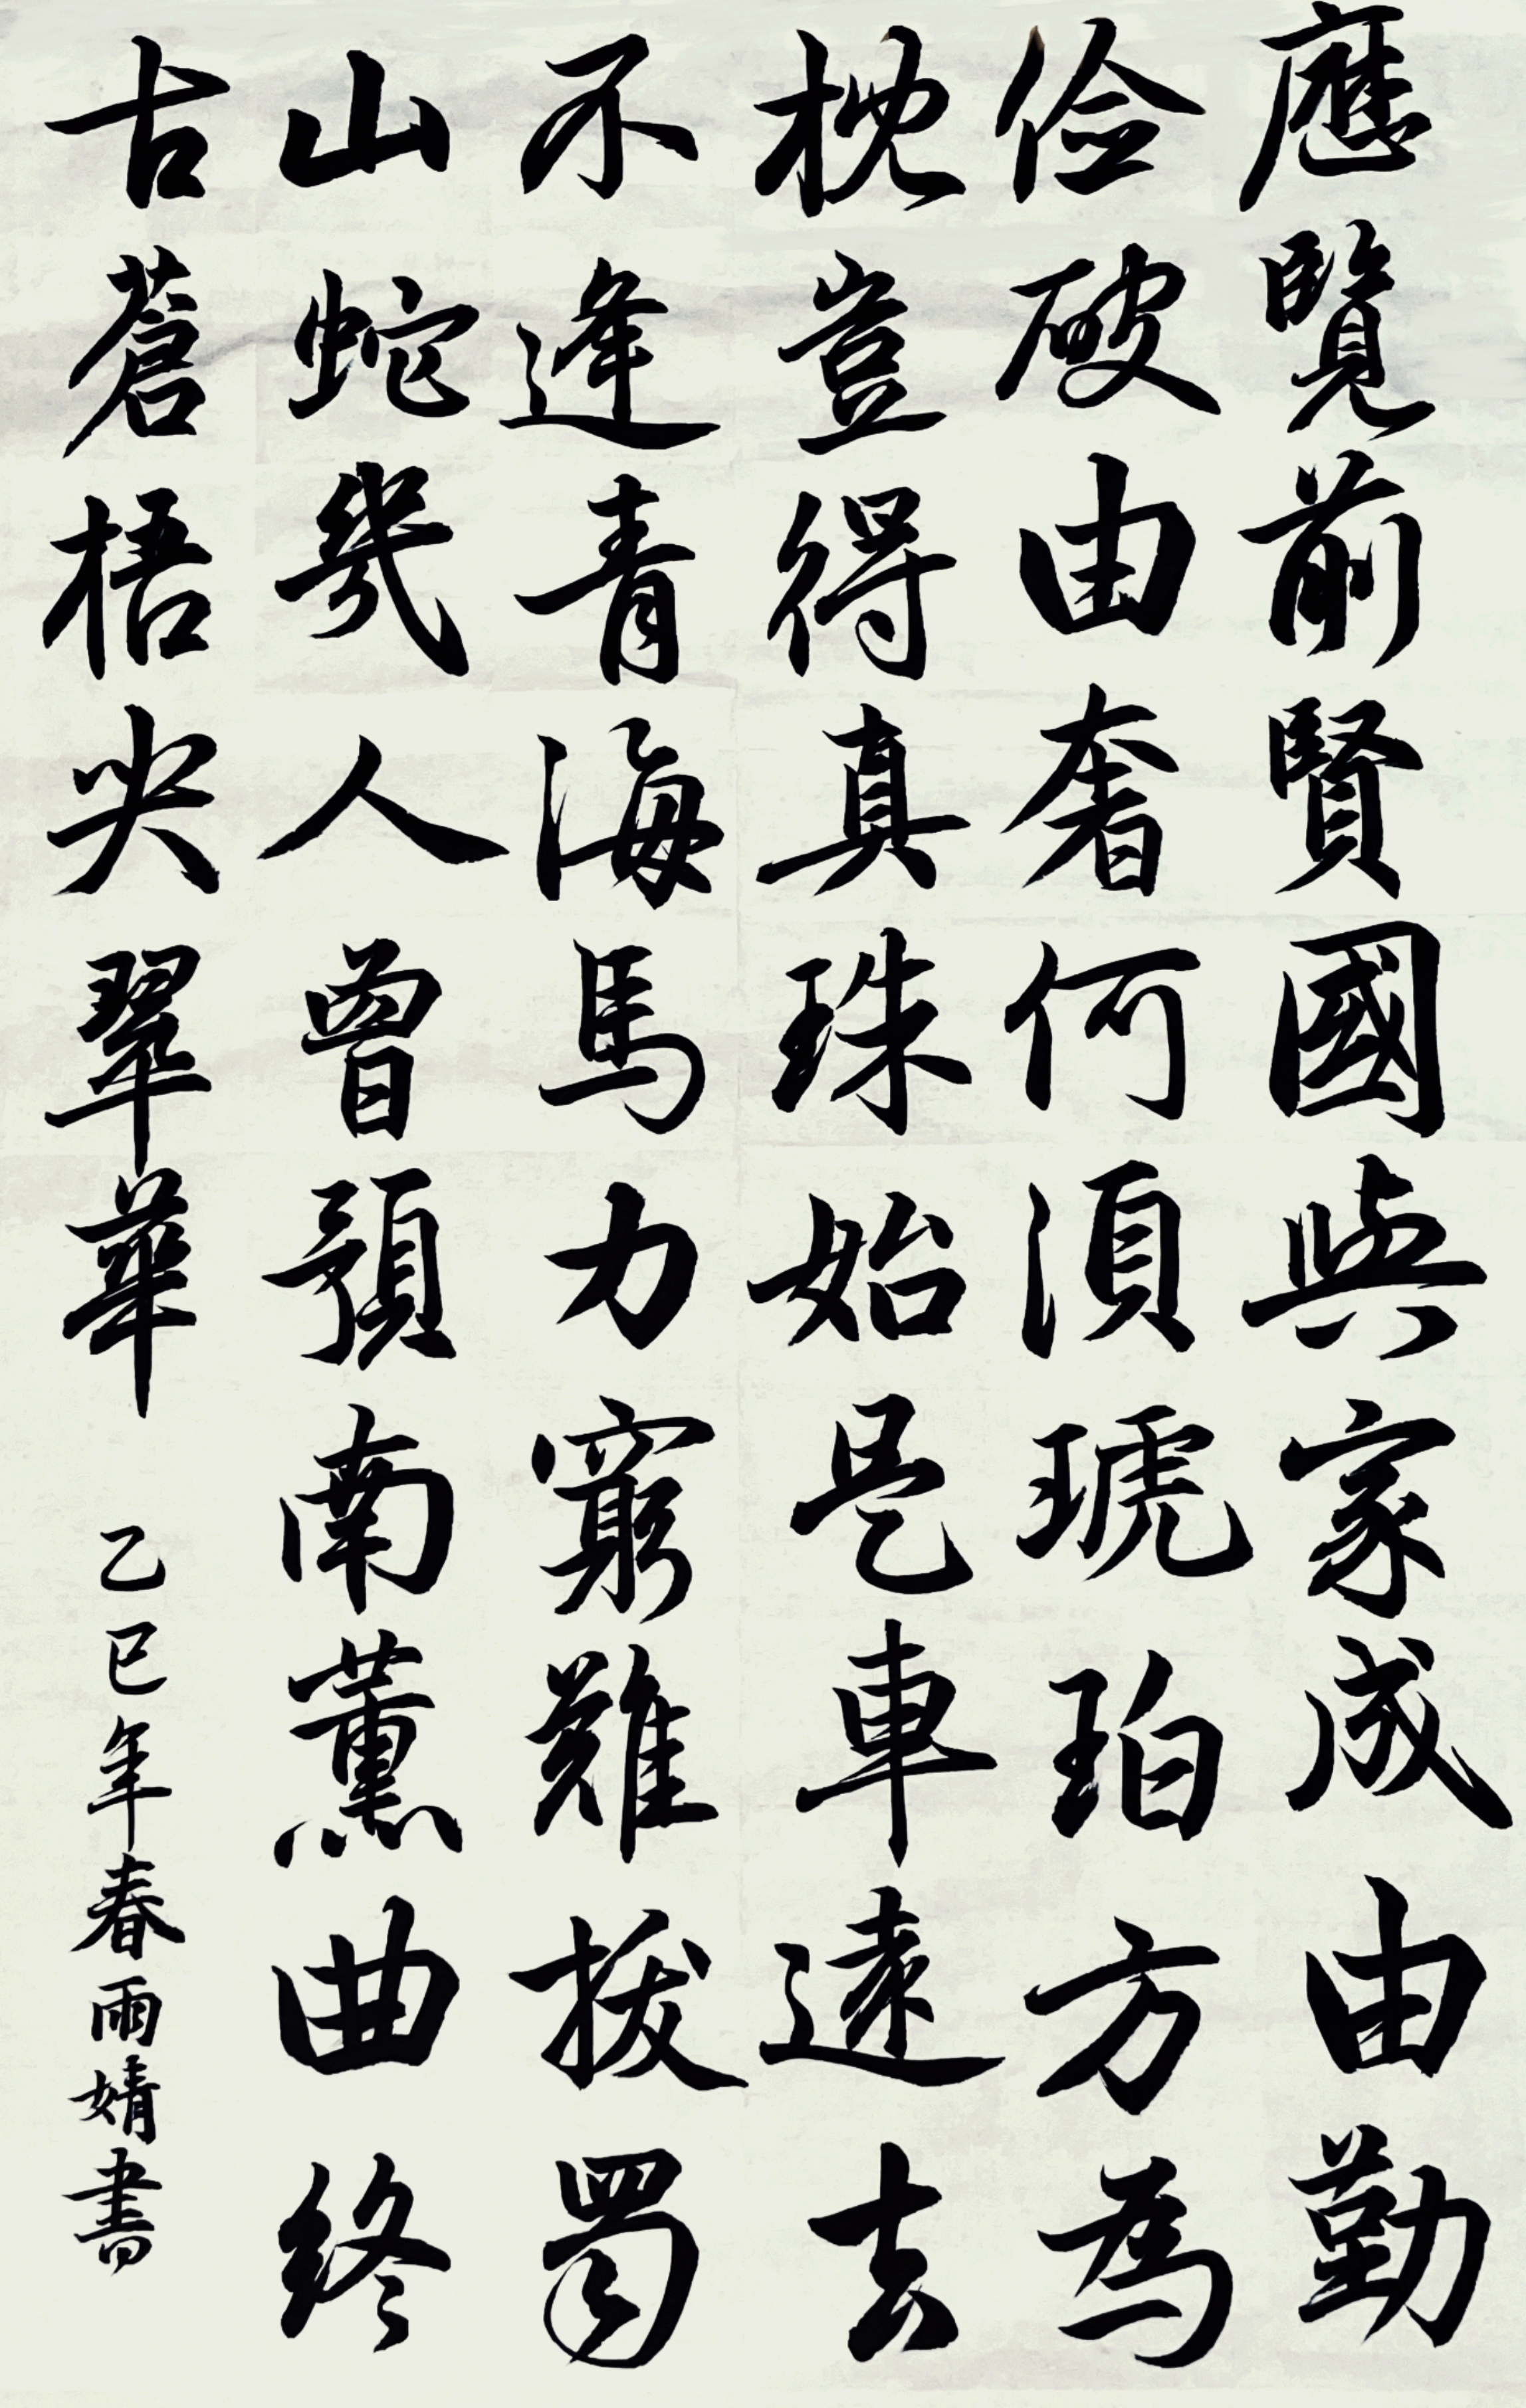 歷覽前賢國與家成由勤
儉破由奢何須琥珀方為
枕豈得真珠始是車遠去
不逢青海馬力窮難拔蜀
山蛇幾人曾預南薰曲終
古蒼梧哭翠華
乙巳年春雨婧書